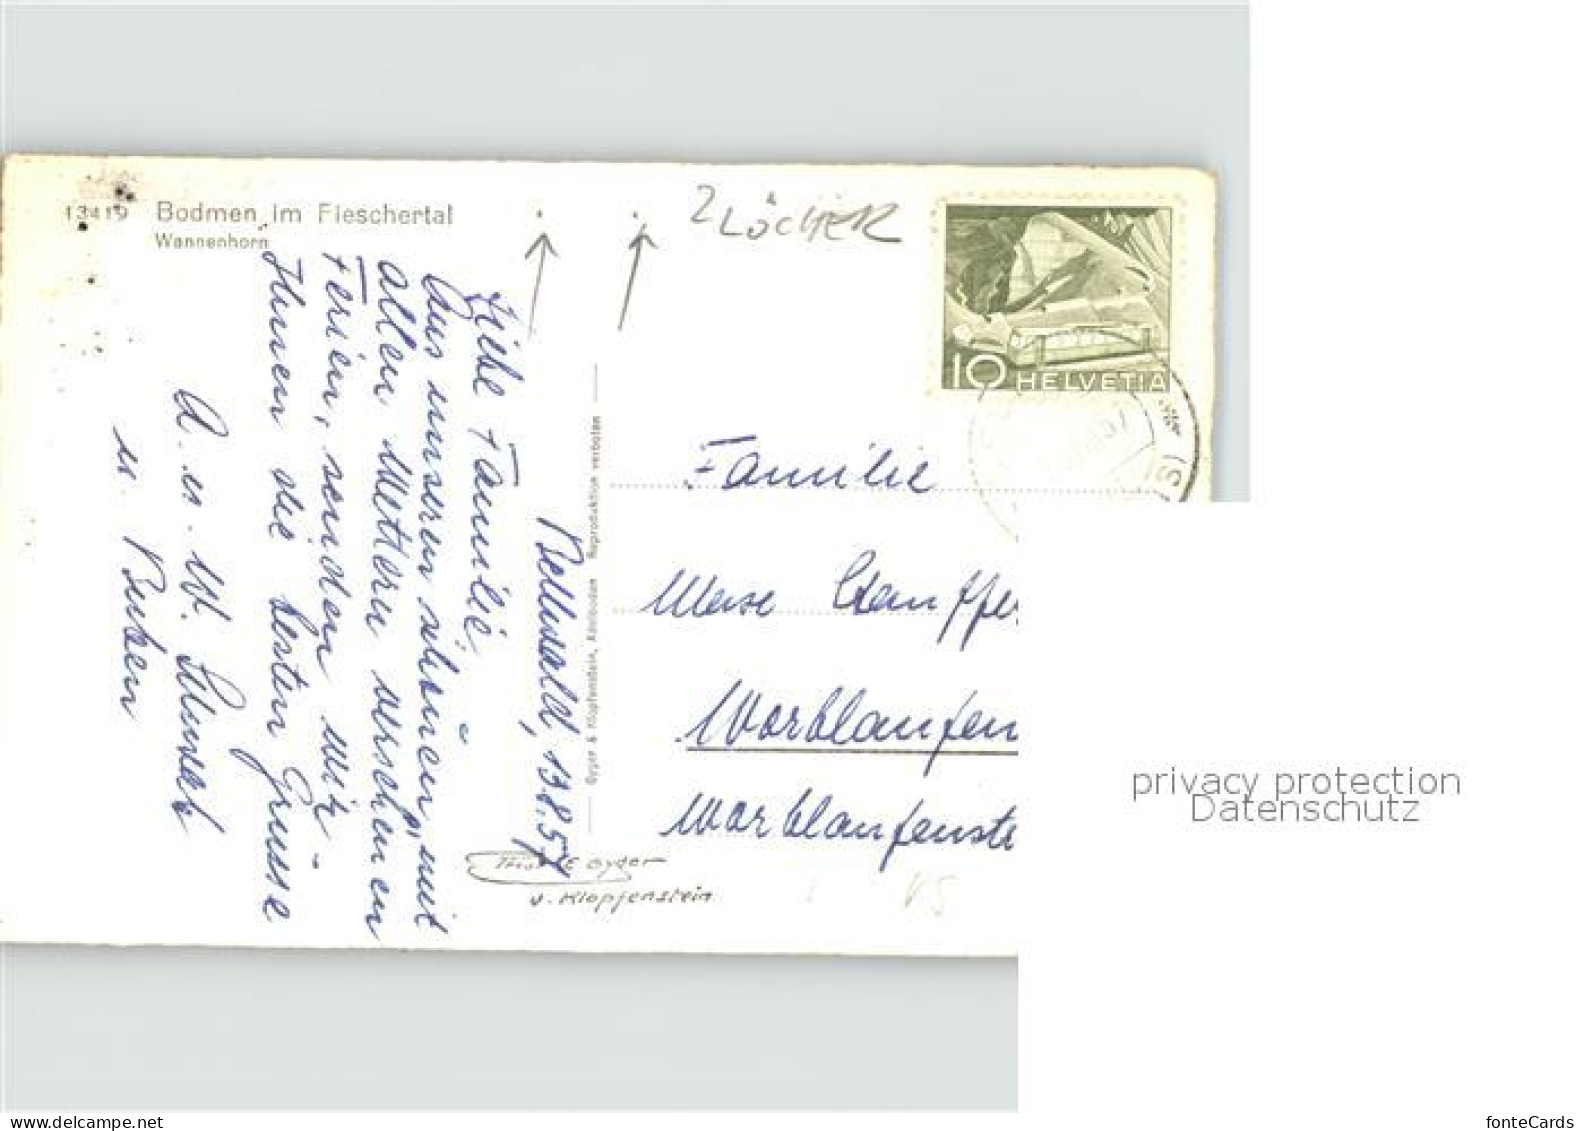 13419 Bodmen im Fieschertal
Wannenhorn
2 LÖCHER
10 HELVETIA
Bellwald, 13.8.57
Liebe Familie
Aus unseren schönen, mit
allen Wettern versehenen
Ferien, senden wir
Ihnen die besten Grüsse
A. u. W.
u. Buben
Gyger & Klopfenstein, Adelboden Reproduktion verboten
Familie
Stauffe
Worblaufen
Worblaufenst
Gyger
u. Klopfenstein
VS
privacy protection
Datenschutz
fonteCards